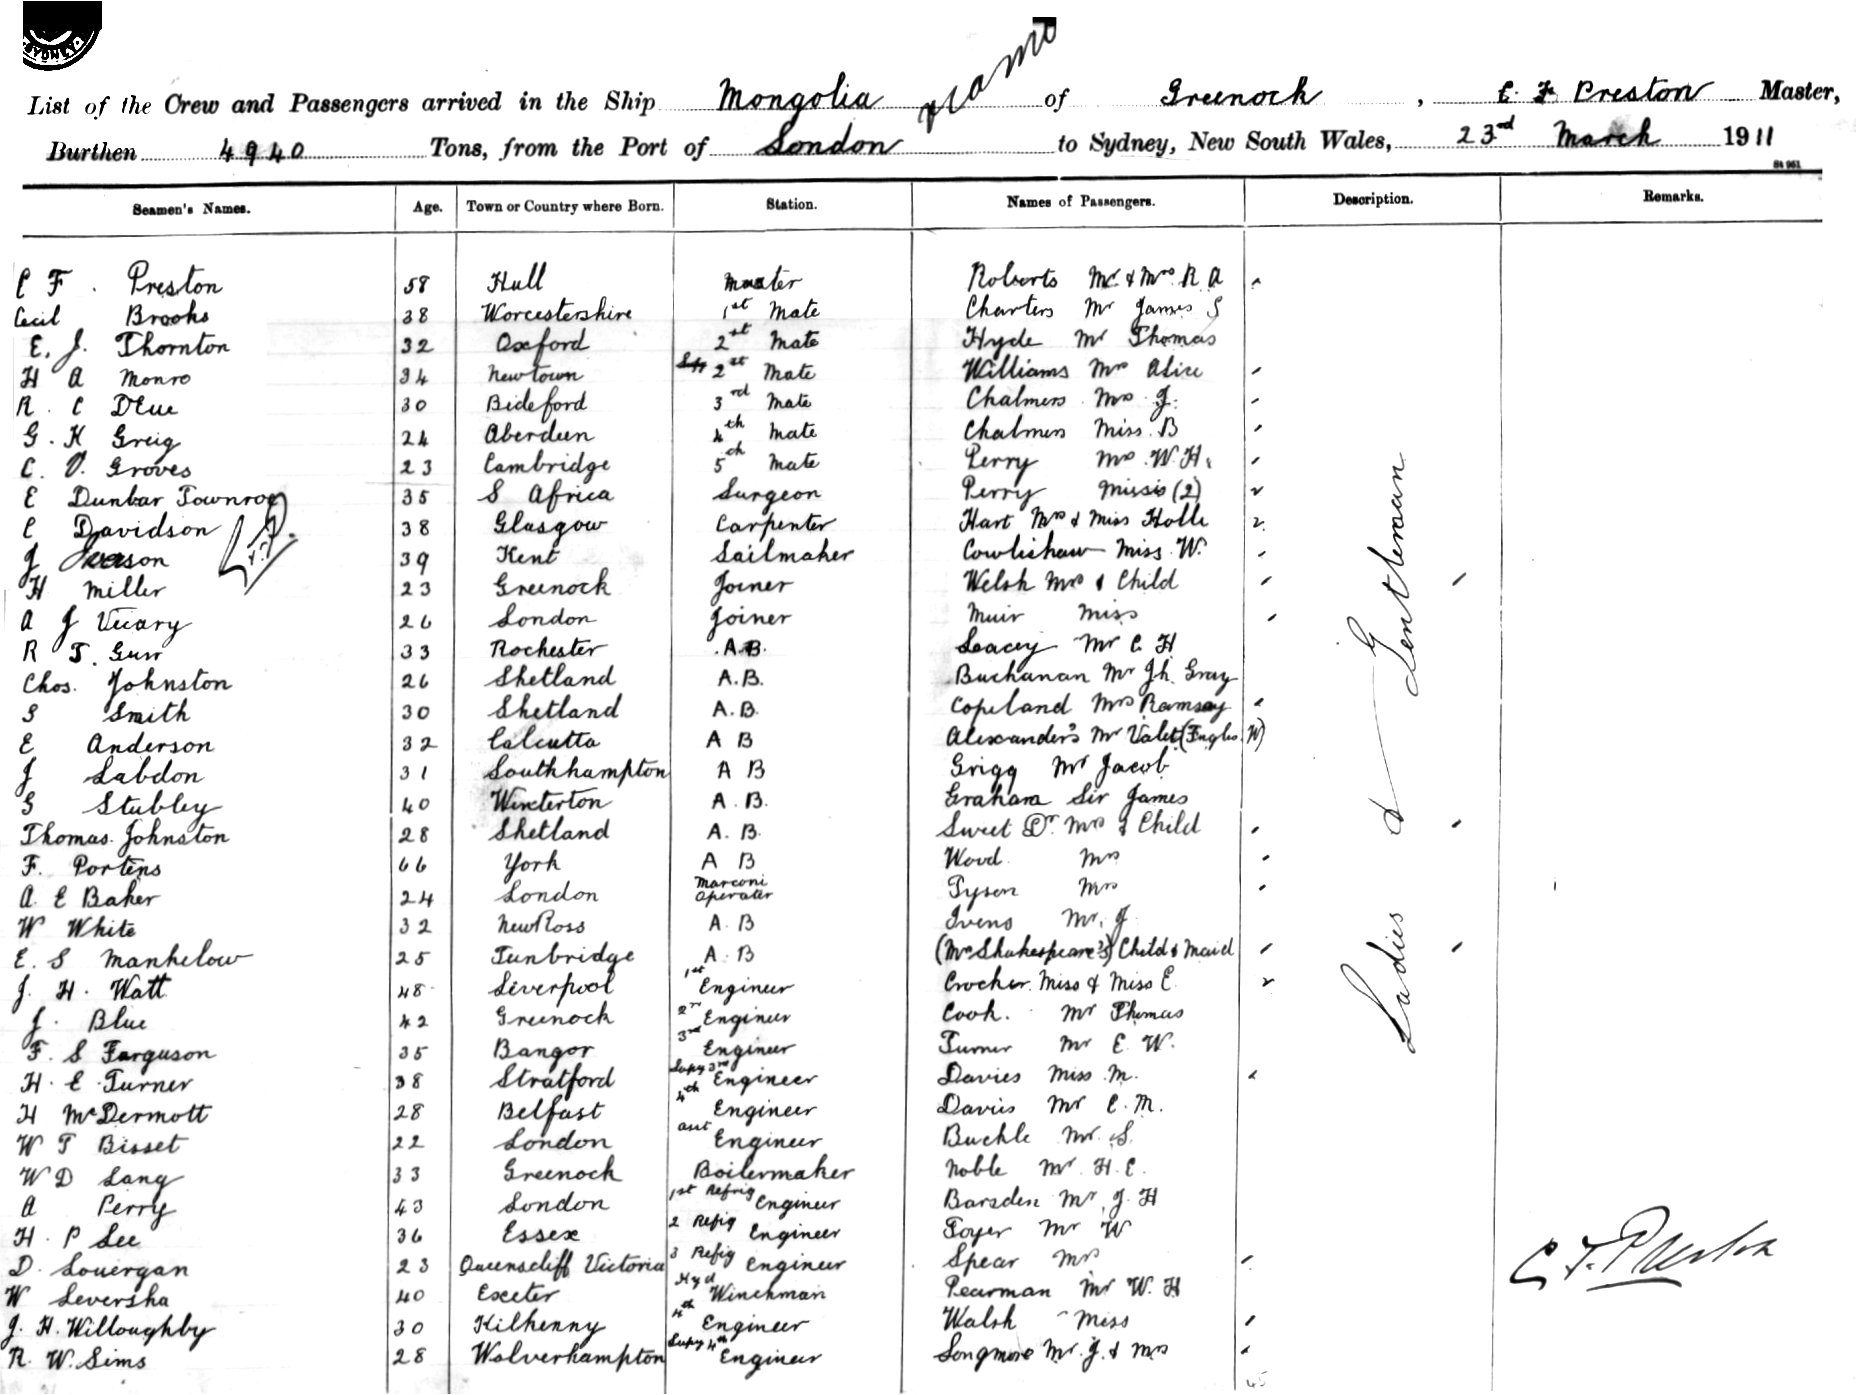 SYDNEY
List of the Crew and Passengers arrived in the Ship Mongolia of Greenock, C. F. Preston Master,
Burthen 4940 Tons, from the Port of London to Sydney, New South Wales, 23rd March 1911
St 961
Seamen's Names. Age. Town or Country where Born. Station. Names of Passengers. Description. Remarks.
C F. Preston 58 Hull Master Roberts Mr. & Mrs R A
Cecil Brooks 38 Worcestershire 1st Mate Charters Mr James S
E. J. Thornton 32 Oxford 2st Mate Hyde Mr Thomas
H A Monro 34 Newtown 2st Mate Williams Mrs Alice
R. C 30 Bideford 3rd Mate Chalmers Mrs J.
G. K Greig 24 Aberdeen 4th Mate Chalmers Miss. B
C. V. Groves 23 Cambridge 5th Mate Perry Mrs. W. H.
E Dunbar Townroe 35 S Africa Surgeon Perry Misses (2)
C Davidson 38 Glasgow Carpenter Hart Mrs & Miss Holle
J 39 Kent Sailmaker Cowlishaw Miss. W.
H Miller 23 Greenock Joiner Welsh Mrs & Child
A J Vicary 26 London Joiner Muir Miss
R T. Gurr 33 Rochester A.B. Leacey Mr C H
Chos. Johnston 26 Shetland A.B. Buchanan Mr Jh. Gray
S Smith 30 Shetland A.B. Copeland Mrs Ramsay
E Anderson 32 Calcutta A B Alexander's Mr Valet (Engles. W)
J Labdon 31 Southhampton A B Grigg Mr Jacob
G Stubley 40 Winterton A.B. Graham Sir James
Thomas. Johnston 28 Shetland A. B. Sweet Dr. Mrs & Child
F. Portens 66 York A B Wood. Mrs
A. E Baker 24 London Marconi Operator Tyson Mrs
W White 32 New Ross A. B Ivens Mr. J
E. S Mankelow 25 Tunbridge A. B (Mrs Shakespeare's) Child & Maid
J. H. Watt 48 Liverpool 1st Engineer Crocker. Miss & Miss E.
J. Blue 42 Greenock 2nd Engineer Cook. Mr Thomas
F. S Farguson 35 Bangor 3rd Engineer Turner Mr E. W.
H. E. Turner 38 Stratford Supy 3rd Engineer Davies Miss. M.
H McDermott 28 Belfast 4th Engineer Davies Mr C. M.
W T Bisset 22 London Engineer Buckle Mr. S.
W D Lang 33 Greenock Boilermaker Noble Mr. H. E.
A Perry 43 London 1st Refrig Engineer Barsden Mr. J. H
H. P Lee 36 Essex 2 Refig Engineer Toyer Mr W
D. Louergan 23 Queenscliff Victoria 3 Refig Engineer Spear Mrs
W Leversha 40 Exeter Hyd Winchman Pearman Mr W. H
J. H. Willoughby 30 Kilkenny 4th Engineer Walsh Miss
R. W. Sims 28 Wolverhampton Supy 4th Engineer Longmore Mr. J. & Mrs
Ladies & Gentleman
C. F. Preston
45